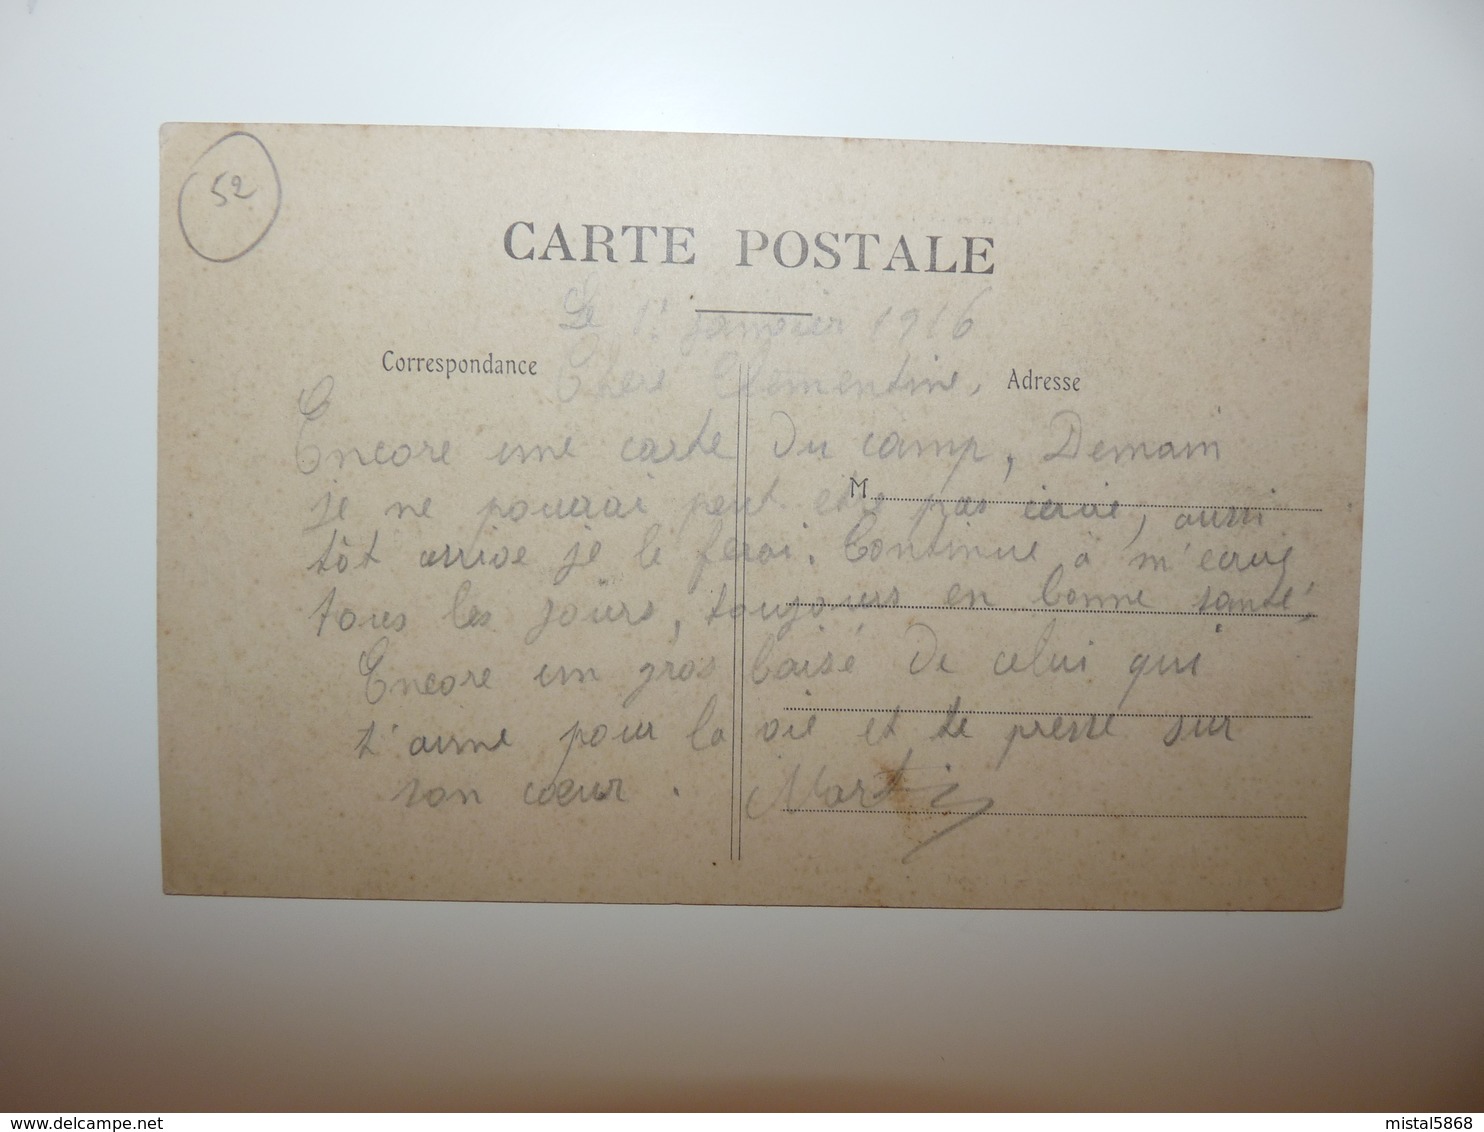 52
CARTE POSTALE
Le 1er janvier 1916
Correspondance
Chere Clementine,
Adresse
Encore une carte du camp, Demain
M
je ne pourrai peut etre pas ecrire, aussi
tôt arrive je le ferai. Continue a m'ecrire
tous les jours, toujours en bonne santé,
Encore un gros baisé de celui qui
t'aime pour la vie et te presse sur
son cœur. Martin
www.delcampe.net
mistal5868